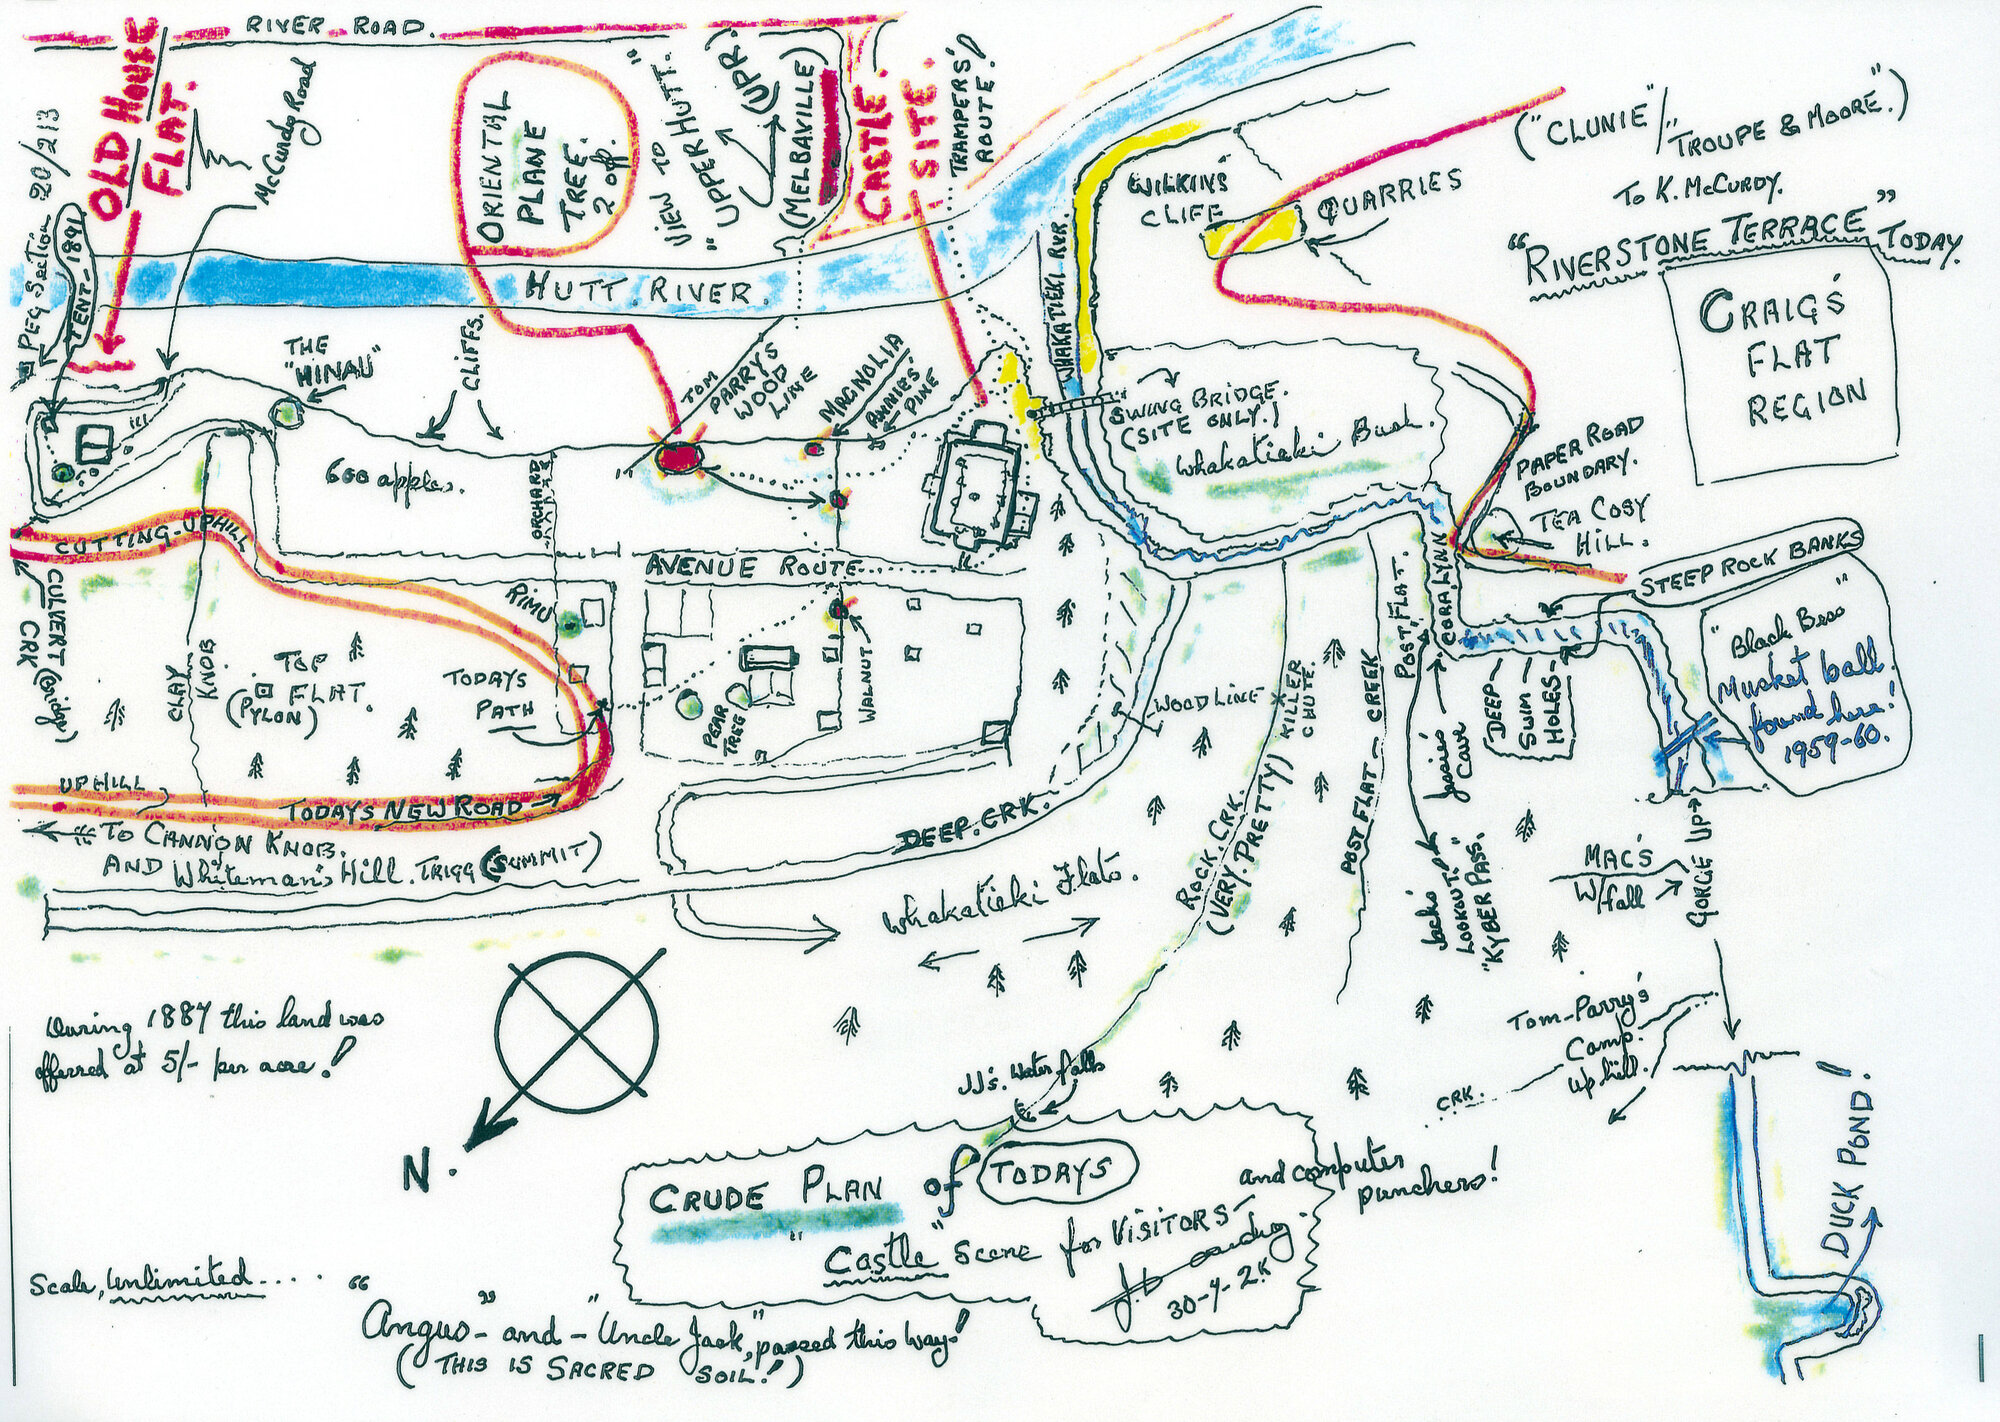 RIVER ROAD.
OLD HOUSE
FLAT.
McCurdy Road
PEG Section 20/213
TENT-1891
ORIENTAL
PLANE
TREE.
2 off.
VIEW TO
"UPPER HUTT."
(UPR.)
(MELBAVILLE)
CASTLE
SITE.
TRAMPERS'
ROUTE!
HUTT. RIVER.
WHAKATIEKI RVR.
WILKINS
CLIFF
QUARRIES
("CLUNIE"/
TROUPE & MOORE.")
To K. McCURDY.
"RIVERSTONE TERRACE"
TODAY.
CRAIGS
FLAT
REGION
THE
"HINAU"
CLIFFS.
TOM
PARRYS
WOOD
LINE
MAGNOLIA
ANNIES
PINE
SWING BRIDGE.
(SITE ONLY.)
Whakatieki Bush.
PAPER ROAD
BOUNDARY.
TEA COSY
HILL.
STEEP ROCK BANKS
600 apples.
ORCHARD
CUTTING-UPHILL
AVENUE ROUTE
CULVERT (@ridgy)
CRK
CLAY
KNOB
TOP
FLAT.
(PYLON)
RIMU
TODAYS
PATH
PEAR
TREE
WALNUT
WOOD LINE
KILLER
CHUTE.
POST FLAT.
CORA LYNN
POST FLAT CREEK
DEEP
SWIM
HOLES
Jessie's
Cave
"Black Bess"
Musket ball
found here!
1959-60.
UPHILL
TODAYS NEW ROAD
TO CANNON KNOB.
AND Whiteman's Hill. TRIGG (SUMMIT)
DEEP. CRK.
Whakatieki Flats.
ROCK. CRK.
(VERY. PRETTY)
Jack's
LOOKOUT.
"KYBER PASS."
MAC'S
W/fall
GORGE UP
During 1887 this land was
offerred at 5/- per acre!
N.
JJ's. Water falls
Tom-Parry's
Camp.
up hill.
CRK.
DUCK POND!
CRUDE PLAN of TODAYS
"Castle" Scene for VISITORS
and computer
punchers!
30-4-2K
Scale, Unlimited....
"Angus"- and -"Uncle Jack", passed this way!
(THIS IS SACRED SOIL!)